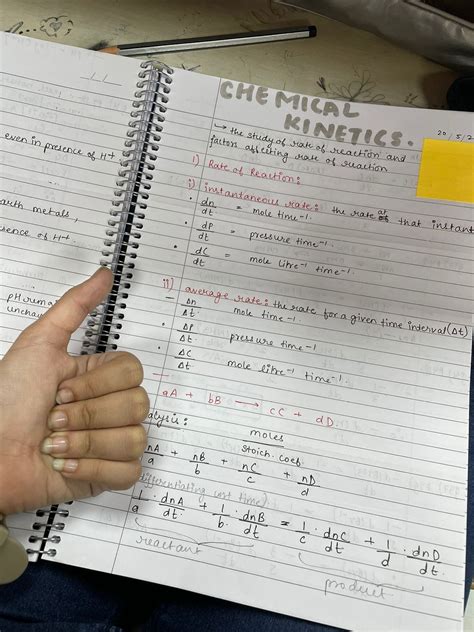 even in presence of H+
arth metals,
sence of H+
unchan
CHEMICAL
KINETICS.
20/5/2
→ the study of rate of reaction and
factors affecting rate of reaction
1) Rate of Reaction:
i) instantaneous rate: the rate at that instant
• dn/dt = mole time-1.
• dP/dt = pressure time-1.
• dC/dt = mole litre-1 time-1.
ii) average rate: the rate for a given time interval (Δt)
— Δn/Δt mole time-1
• ΔP/Δt pressure time-1.
• ΔC/Δt mole litre-1 time-1.
— aA + bB → cC + dD.
alysis: moles/Stoich. coef.
nA/a + nB/b + nC/c + nD/d
differentiating wrt time)
1/a . dnA/dt + 1/b . dnB/dt = 1/c . dnC/dt + 1/d . dnD/dt.
reactant product